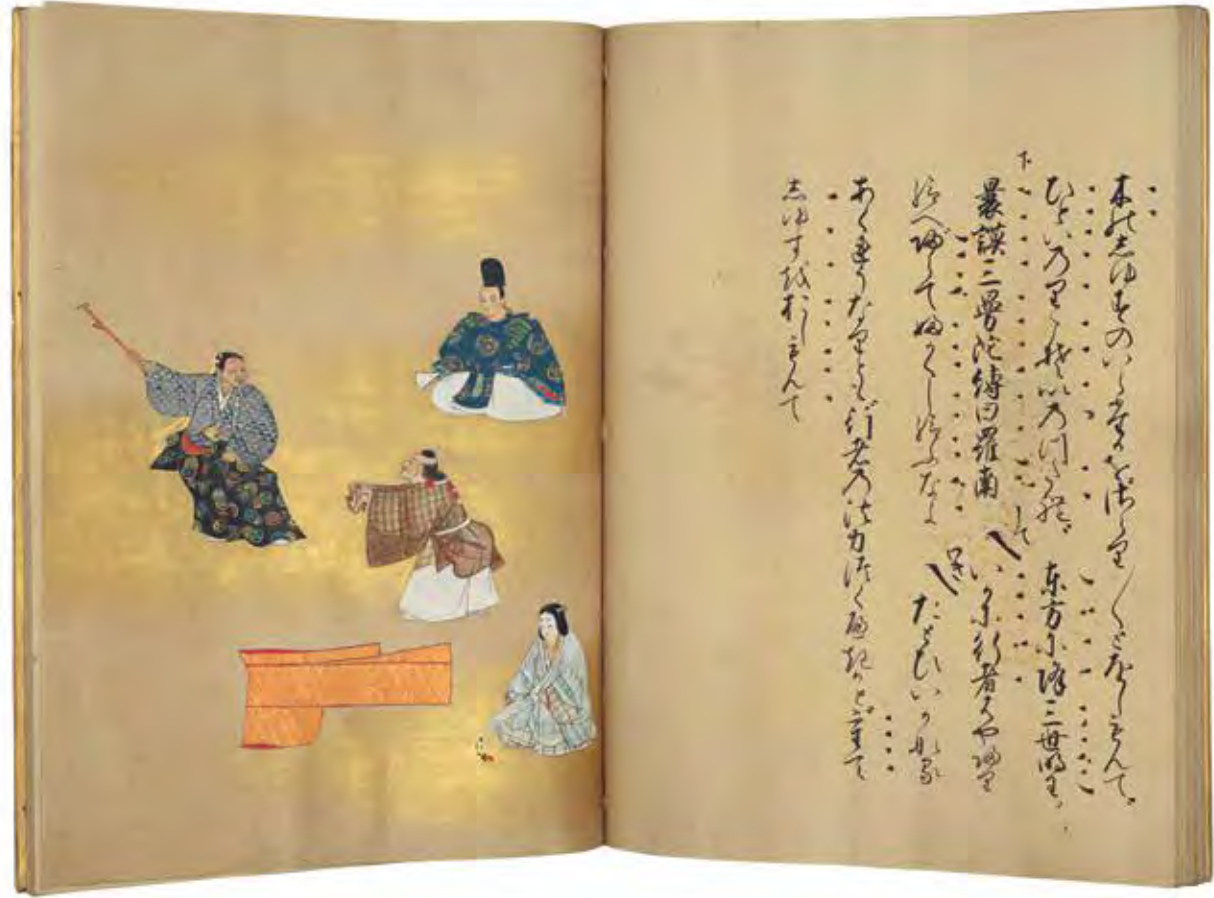 木のしゆすのいらたかをさらり/\とをしもんて、
ひといのりこそいのつたれ、東方に降三世明王、
下
曩謨三曼陀縛曰羅南 して いかに行者はや帰り
給へ帰らてふかくし給ふなよ わき たとひいかなる
あくれうなりとも行者の法力つくへきかと重て
志ゆすををしもんて